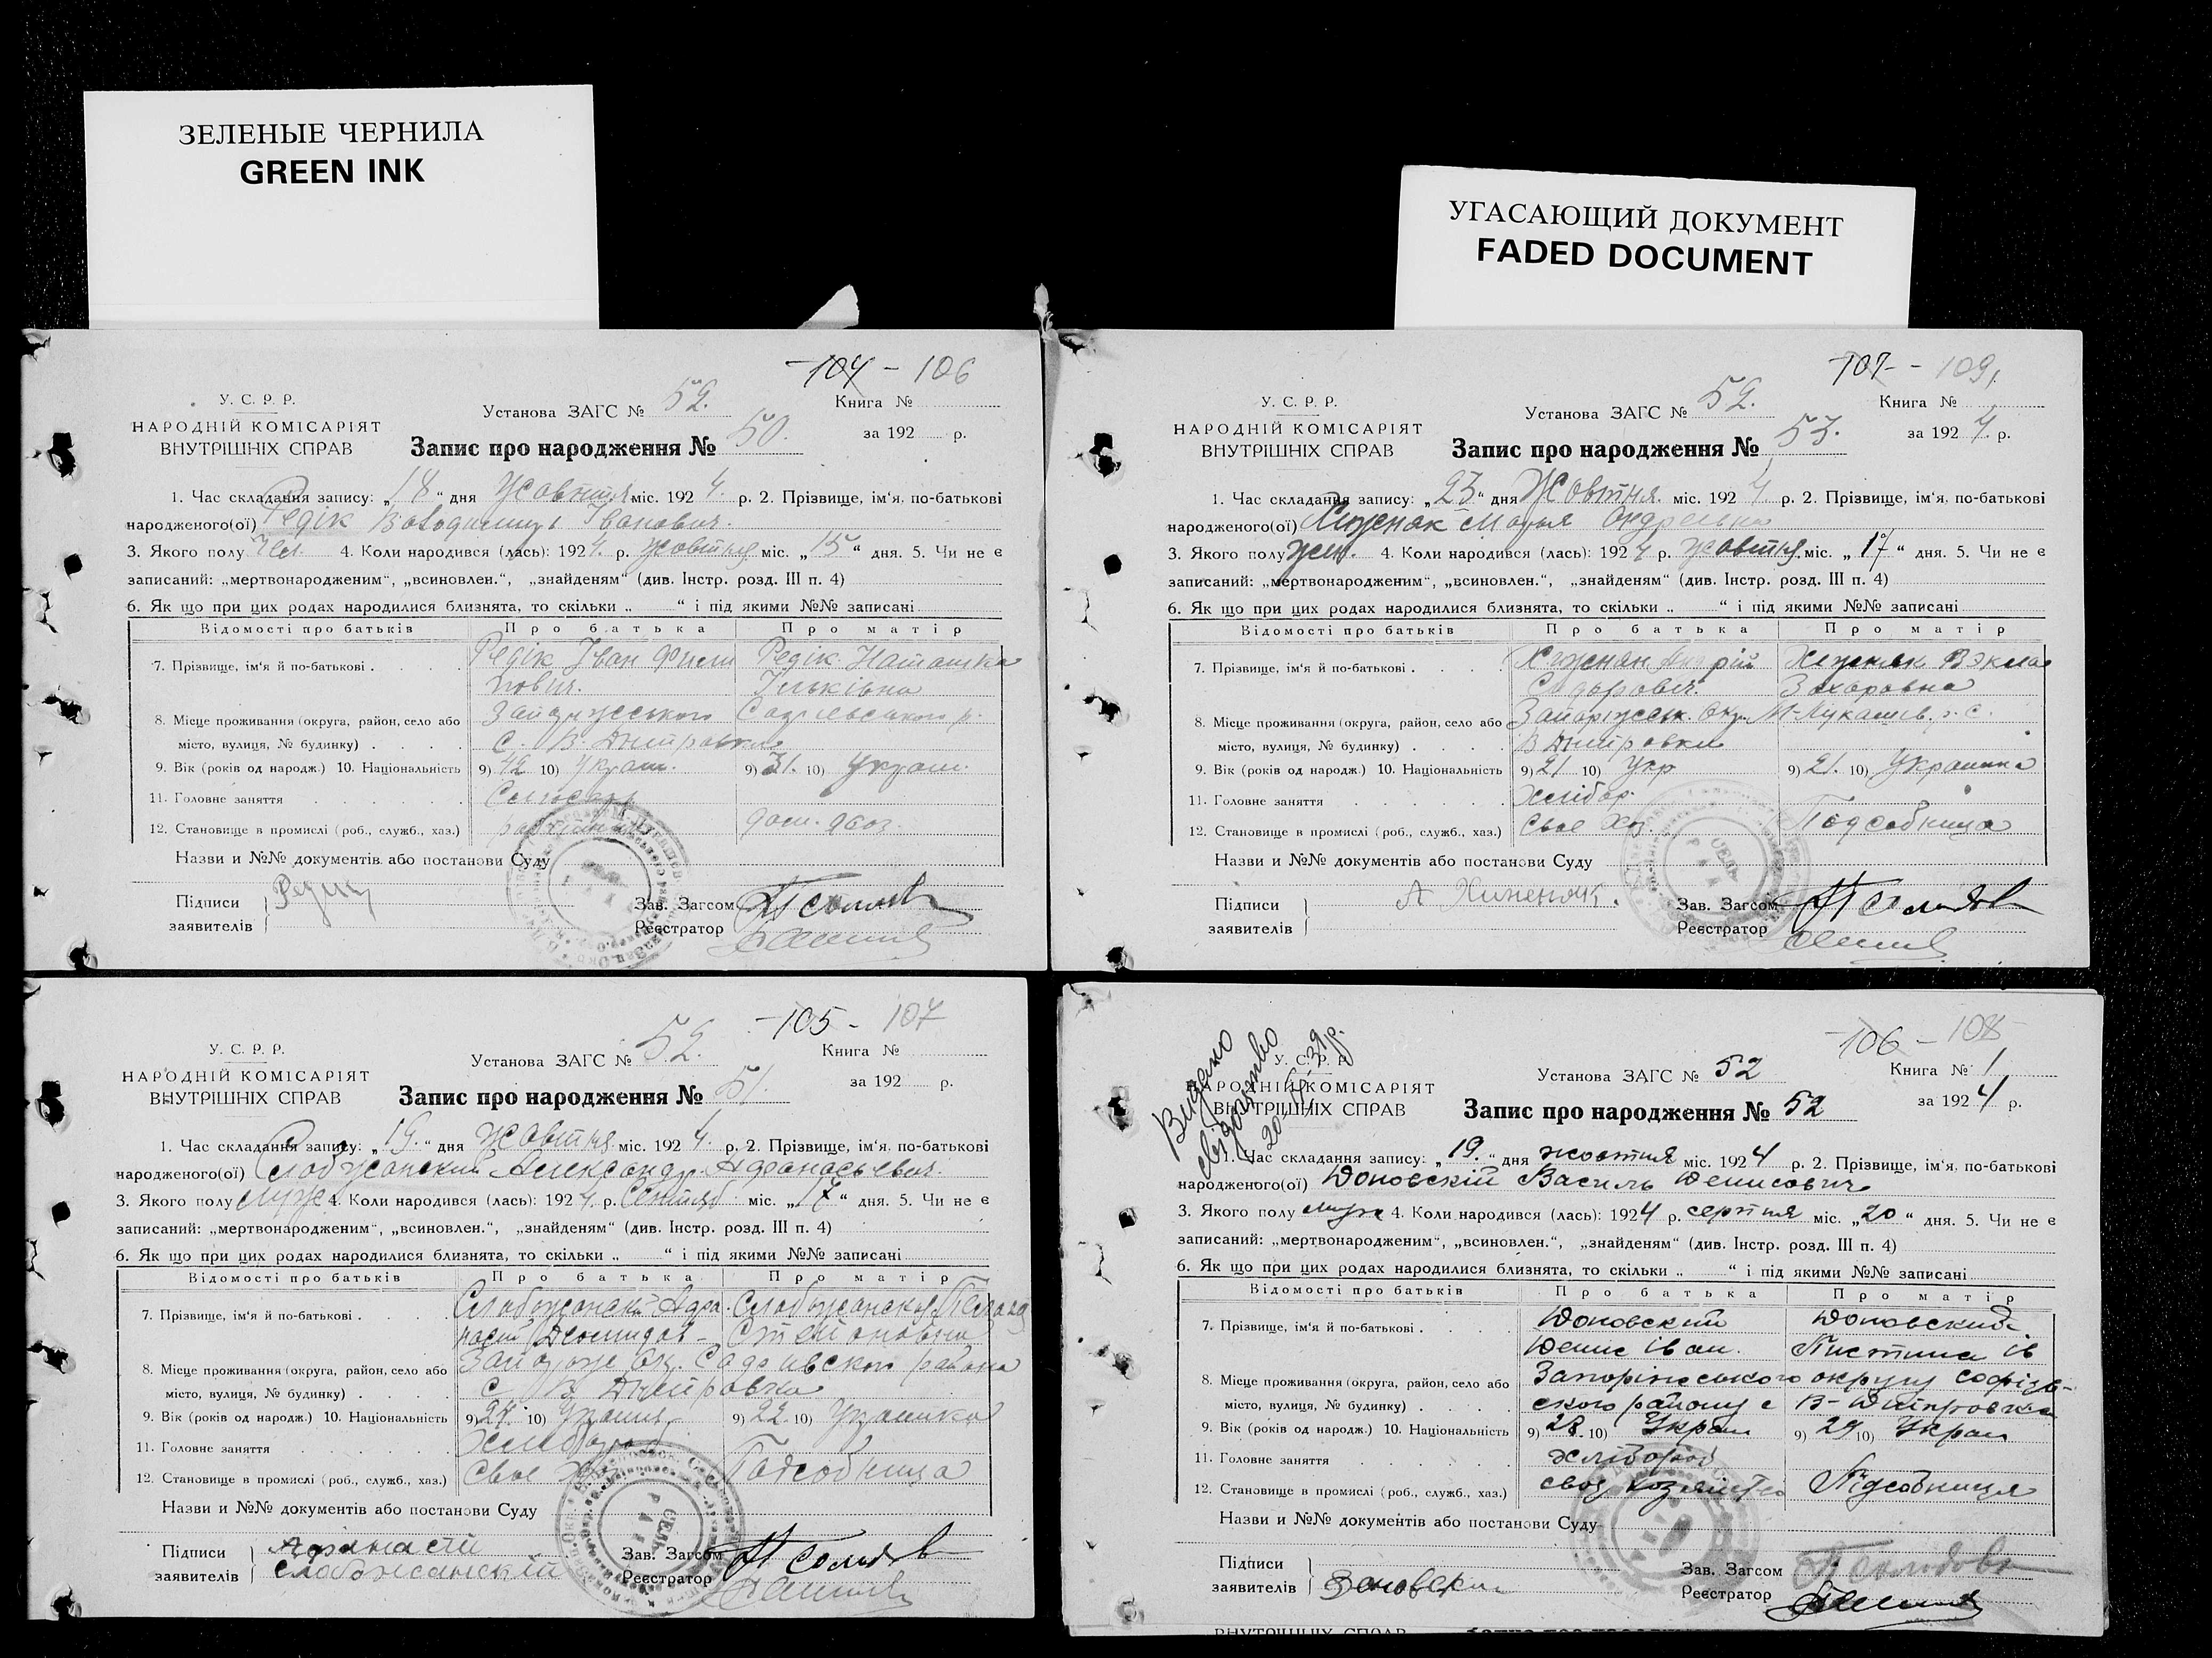 ЗЕЛЕНЫЕ ЧЕРНИЛА
GREEN INK
УГАСАЮЩИЙ ДОКУМЕНТ
FADED DOCUMENT
104 - 106
У. С. Р. Р.
НАРОДНІЙ КОМІСАРІЯТ
ВНУТРІШНІХ СПРАВ
Установа ЗАГС № 52.
Книга №
Запис про народження № 50.
за 192 р.
1. Час складання запису: „18“ дня Жовтня міс. 1924. р. 2. Прізвище, ім‘я, по-батькові
народженого(ої) Редік Володимир Іванович.
3. Якого полу Чол. 4. Коли народився (лась): 1924. р. Жовтня міс. „15“ дня. 5. Чи не є
записаний: „мертвонародженим“, „всиновлен.“, „знайденям“ (див. Інстр. розд. III п. 4)
6. Як що при цих родах народилися близнята, то скільки „ “ і під якими №№ записані
Відомості про батьків Про батька Про матір
7. Прізвище, ім‘я й по-батькові Редік Іван Редік Наташка
8. Місце проживання (округа, район, село або
місто, вулиця, № будинку) С. В. Дніпровка
9. Вік (років од народж.) 10. Національність 9) 42 10) Україн. 9) 31. 10) Україн.
11. Головне заняття
12. Становище в промислі (роб., служб., хаз.)
Назви и №№ документів або постанови Суду
Підписи
заявителів
Зав. Загсом
Реєстратор
107 - 109
У. С. Р. Р.
НАРОДНІЙ КОМІСАРІЯТ
ВНУТРІШНІХ СПРАВ
Установа ЗАГС № 52.
Книга №
Запис про народження № 53.
за 1924. р.
1. Час складання запису: „23“ дня Жовтня міс. 1924 р. 2. Прізвище, ім‘я, по-батькові
народженого(ої) Хижняк Марья
3. Якого полу жін. 4. Коли народився (лась): 1924 р. Жовтня міс. „17“ дня. 5. Чи не є
записаний: „мертвонародженим“, „всиновлен.“, „знайденям“ (див. Інстр. розд. III п. 4)
6. Як що при цих родах народилися близнята, то скільки „ “ і під якими №№ записані
Відомості про батьків Про батька Про матір
7. Прізвище, ім‘я й по-батькові Хижняк Андрій Хижняк
Сидорович. Захаровна
8. Місце проживання (округа, район, село або Запоріжськ. Окр. М-Лукашів. р. С.
місто, вулиця, № будинку) В Дніпровка
9. Вік (років од народж.) 10. Національність 9) 21 10) Укр 9) 21. 10) Украинка
11. Головне заняття Хлібор.
12. Становище в промислі (роб., служб., хаз.) Свое Хоз. Подсобница
Назви и №№ документів або постанови Суду
Підписи
заявителів
А Хиженяк.
Зав. Загсом
Реєстратор
105 - 107
У. С. Р. Р.
НАРОДНІЙ КОМІСАРІЯТ
ВНУТРІШНІХ СПРАВ
Установа ЗАГС № 52.
Книга №
Запис про народження № 51.
за 192 р.
1. Час складання запису: „19.“ дня Жовтня міс. 1924. р. 2. Прізвище, ім‘я, по-батькові
народженого(ої) Слобжанский Александр Афанасьевич.
3. Якого полу муж 4. Коли народився (лась): 1924. р. Сентяб міс. „17“ дня. 5. Чи не є
записаний: „мертвонародженим“, „всиновлен.“, „знайденям“ (див. Інстр. розд. III п. 4)
6. Як що при цих родах народилися близнята, то скільки „ “ і під якими №№ записані
Відомості про батьків Про батька Про матір
7. Прізвище, ім‘я й по-батькові
8. Місце проживання (округа, район, село або района
місто, вулиця, № будинку) С. В Дніпровка
9. Вік (років од народж.) 10. Національність 9) 24. 10) 9) 22. 10) Украинка
11. Головне заняття Хлебороб
12. Становище в промислі (роб., служб., хаз.) Свое Хоз. Подсобница
Назви и №№ документів або постанови Суду
Підписи
заявителів
Афанасій
Слобжанскій
Зав. Загсом
Реєстратор
106 - 108
Видано
свідоцтво
У. С. Р. Р.
НАРОДНІЙ КОМІСАРІЯТ
ВНУТРІШНІХ СПРАВ
Установа ЗАГС № 52
Книга № 1
Запис про народження № 52
за 1924 р.
1. Час складання запису: „19.“ дня жовтня міс. 1924 р. 2. Прізвище, ім‘я, по-батькові
народженого(ої) Доновскій Василь Денисович
3. Якого полу муж 4. Коли народився (лась): 1924 р. серпня міс. „20“ дня. 5. Чи не є
записаний: „мертвонародженим“, „всиновлен.“, „знайденям“ (див. Інстр. розд. III п. 4)
6. Як що при цих родах народилися близнята, то скільки „ “ і під якими №№ записані
Відомості про батьків Про батька Про матір
7. Прізвище, ім‘я й по-батькові Доновский
Денис Іван. ів
8. Місце проживання (округа, район, село або Запоріжського округу софіїв-
місто, вулиця, № будинку) ского району с В-Дніпровка
9. Вік (років од народж.) 10. Національність 9) 28. 10) Украін 9) 29 10) Украін
11. Головне заняття хлібороб
12. Становище в промислі (роб., служб., хаз.) Підсобниця
Назви и №№ документів або постанови Суду
Підписи
заявителів
Зав. Загсом
Реєстратор